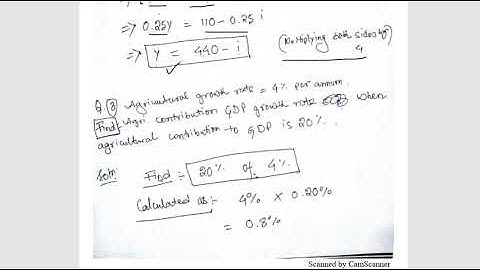 ⇒ 0.25Y = 110 - 0.25 i
⇒ Y = 440 - i
(Multiplying both sides by
4
Q.(3) Agricultural growth rate = 4% per annum.
Find:- Agri contribution GDP growth rate when
agricultural contribution to GDP is 20%.
Soln
Find :- 20% of 4%
Calculated as :- 4% × 0.20%
= 0.8%
Scanned by CamScanner